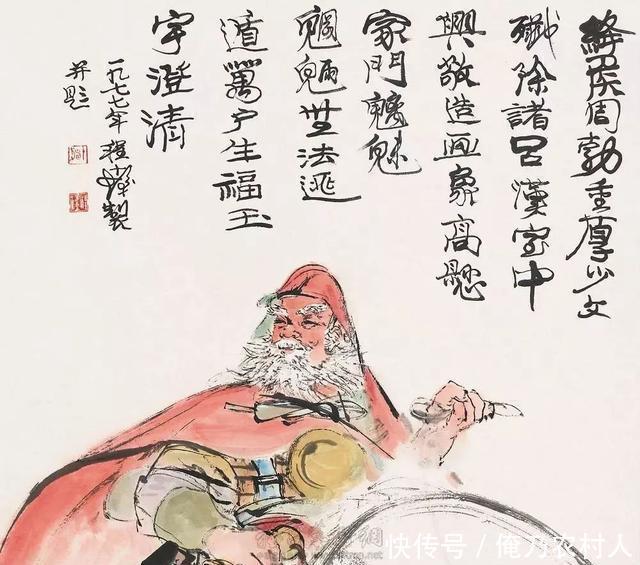 絳侯周勃重厚少文
殲除諸呂漢室中
興敬造画象高懸
家門魑魅
魍魎無法逃
遁萬户生福玉
宇澄清
一九七七年程十髮製
并題
快传号 / 俺乃农村人